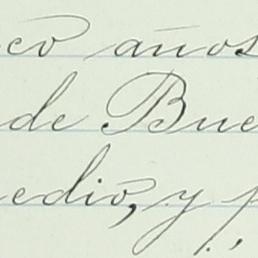 co años
de Bue
edio, y p